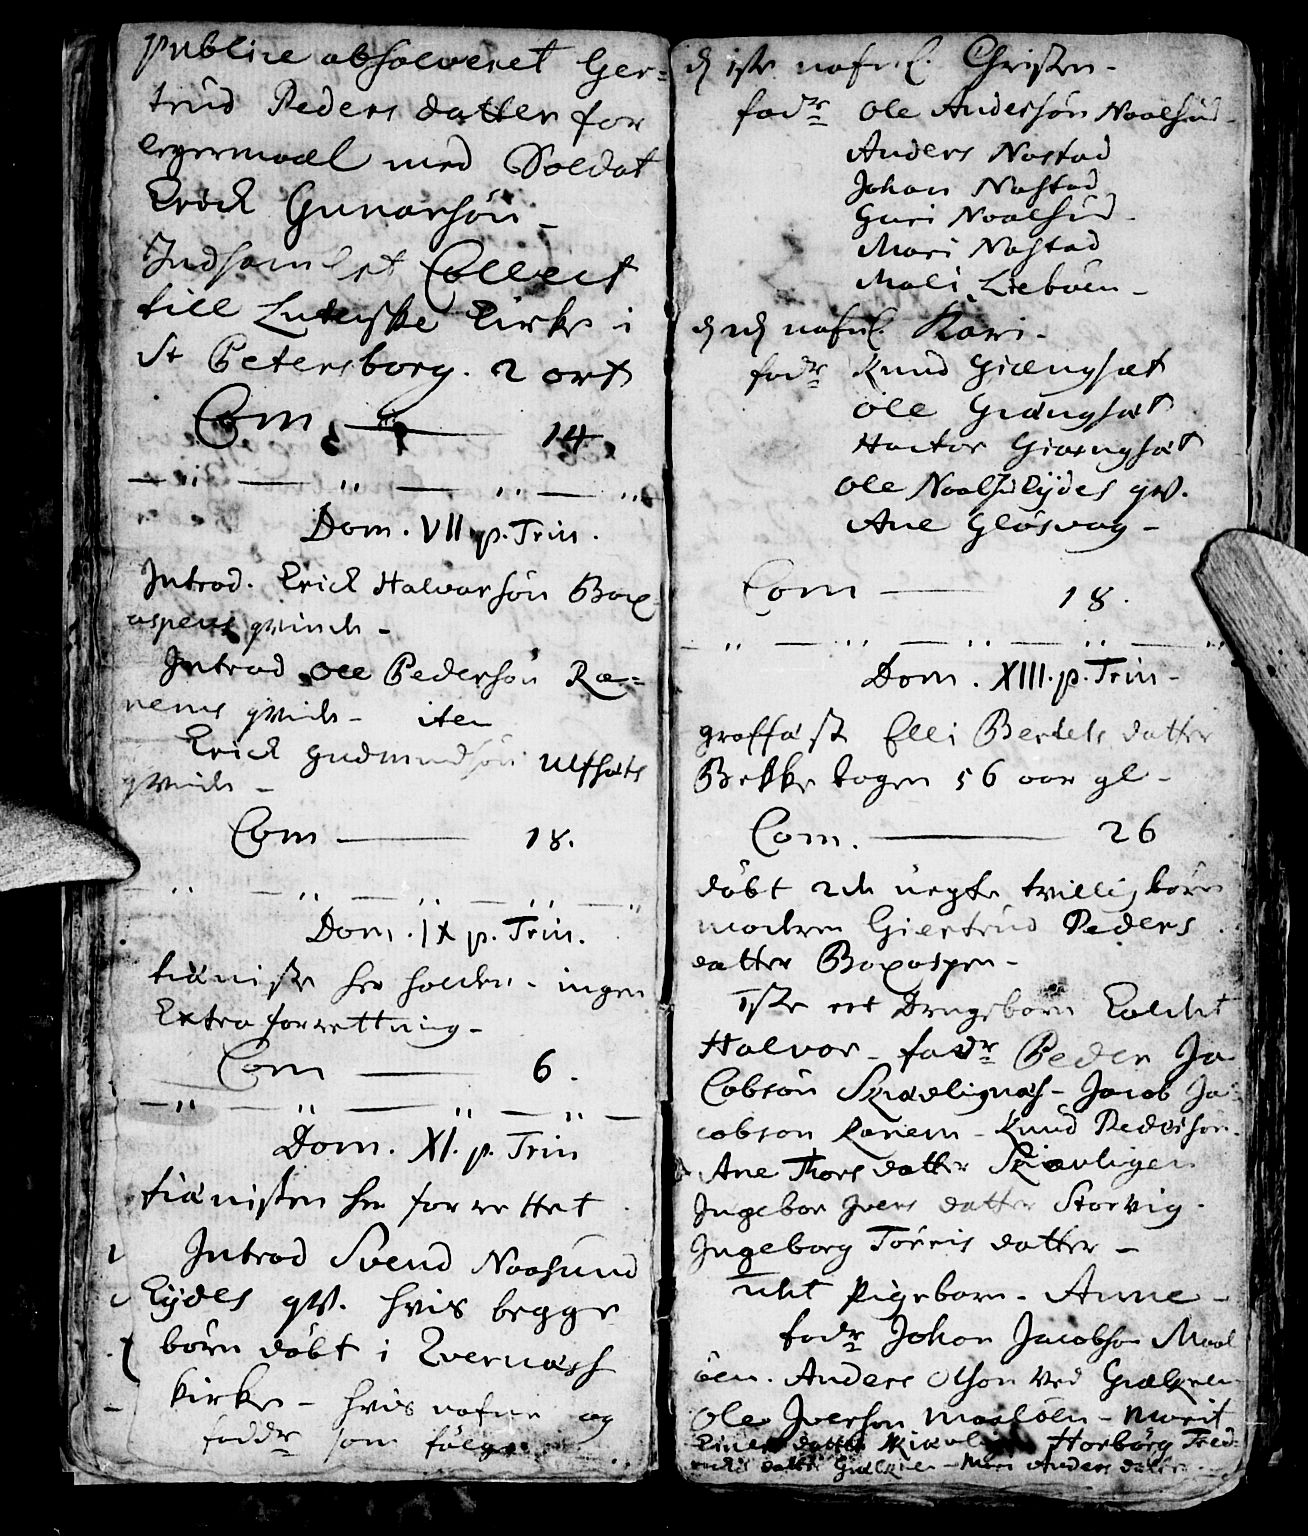 publice absolveret Ger=
trud Peders datter for
legermaal med Soldat
Erick Gunarsøn
Indsamlet Collect
till Luterske Kirke i
St Petersborg. 2 ort
Com 14
Dom. VII p. Trin.
Introd. Erick Halvorsøn Box
aspens qvinde
Introd Ole Pedersøn Ræ=
nems qvinde - item
Erick Gudmundsøn Ulfsæts
qvinde
Com 18.
Dom. IX p. Trin.
tiæniste her holden - ingen
Extra forrettning
Com 6.
Dom. XI. p. Trin
tiænisten her forrettet
Introd Svend Naasund
Eydes qv. hvis begge
børn døbt i Qvernæss
kirke - hvis nafne og
faddr som følger
d iste nafnl. Christen
fadr Ole Andersøn Naalsund
Anders Nastad
Johan Nastad
Guri Naalsund
Mari Nastad
Mali Liebøen
d 2d nafnl. Kari
fadr Knud Giængsæt
Ole Giængsæt
Hactor Giængsæt
Ole Naalsu Eydes qv.
Ane Gløsvag
Com 18.
Dom. XIII. p. Trin
graffæst Elli Bertels datter
Bekkehagen 56 aar gl
Com. 26
døbt 2de uegte tvilling børn
modren Giertrud Peders
datter Boxaspen
1ste et Drengebarn Kaldet
Halvor - fadr Peder Ja
cobsøn Skiævlignæs - Jacob Ja=
cobson Ranem - Knud Pedersøn
Ane Thors datter Skiævligen
Ingebor Ivers datter Storvig
Ingeborg Tørris datter
2det Pigebarn - Anne
fadr Johan Jacobsøn Maal
øen. Anders Olson ved
Ole Iversøn Maaløen - Marit
Einers datter Horborg Fred=
datter - Mari Anders datter